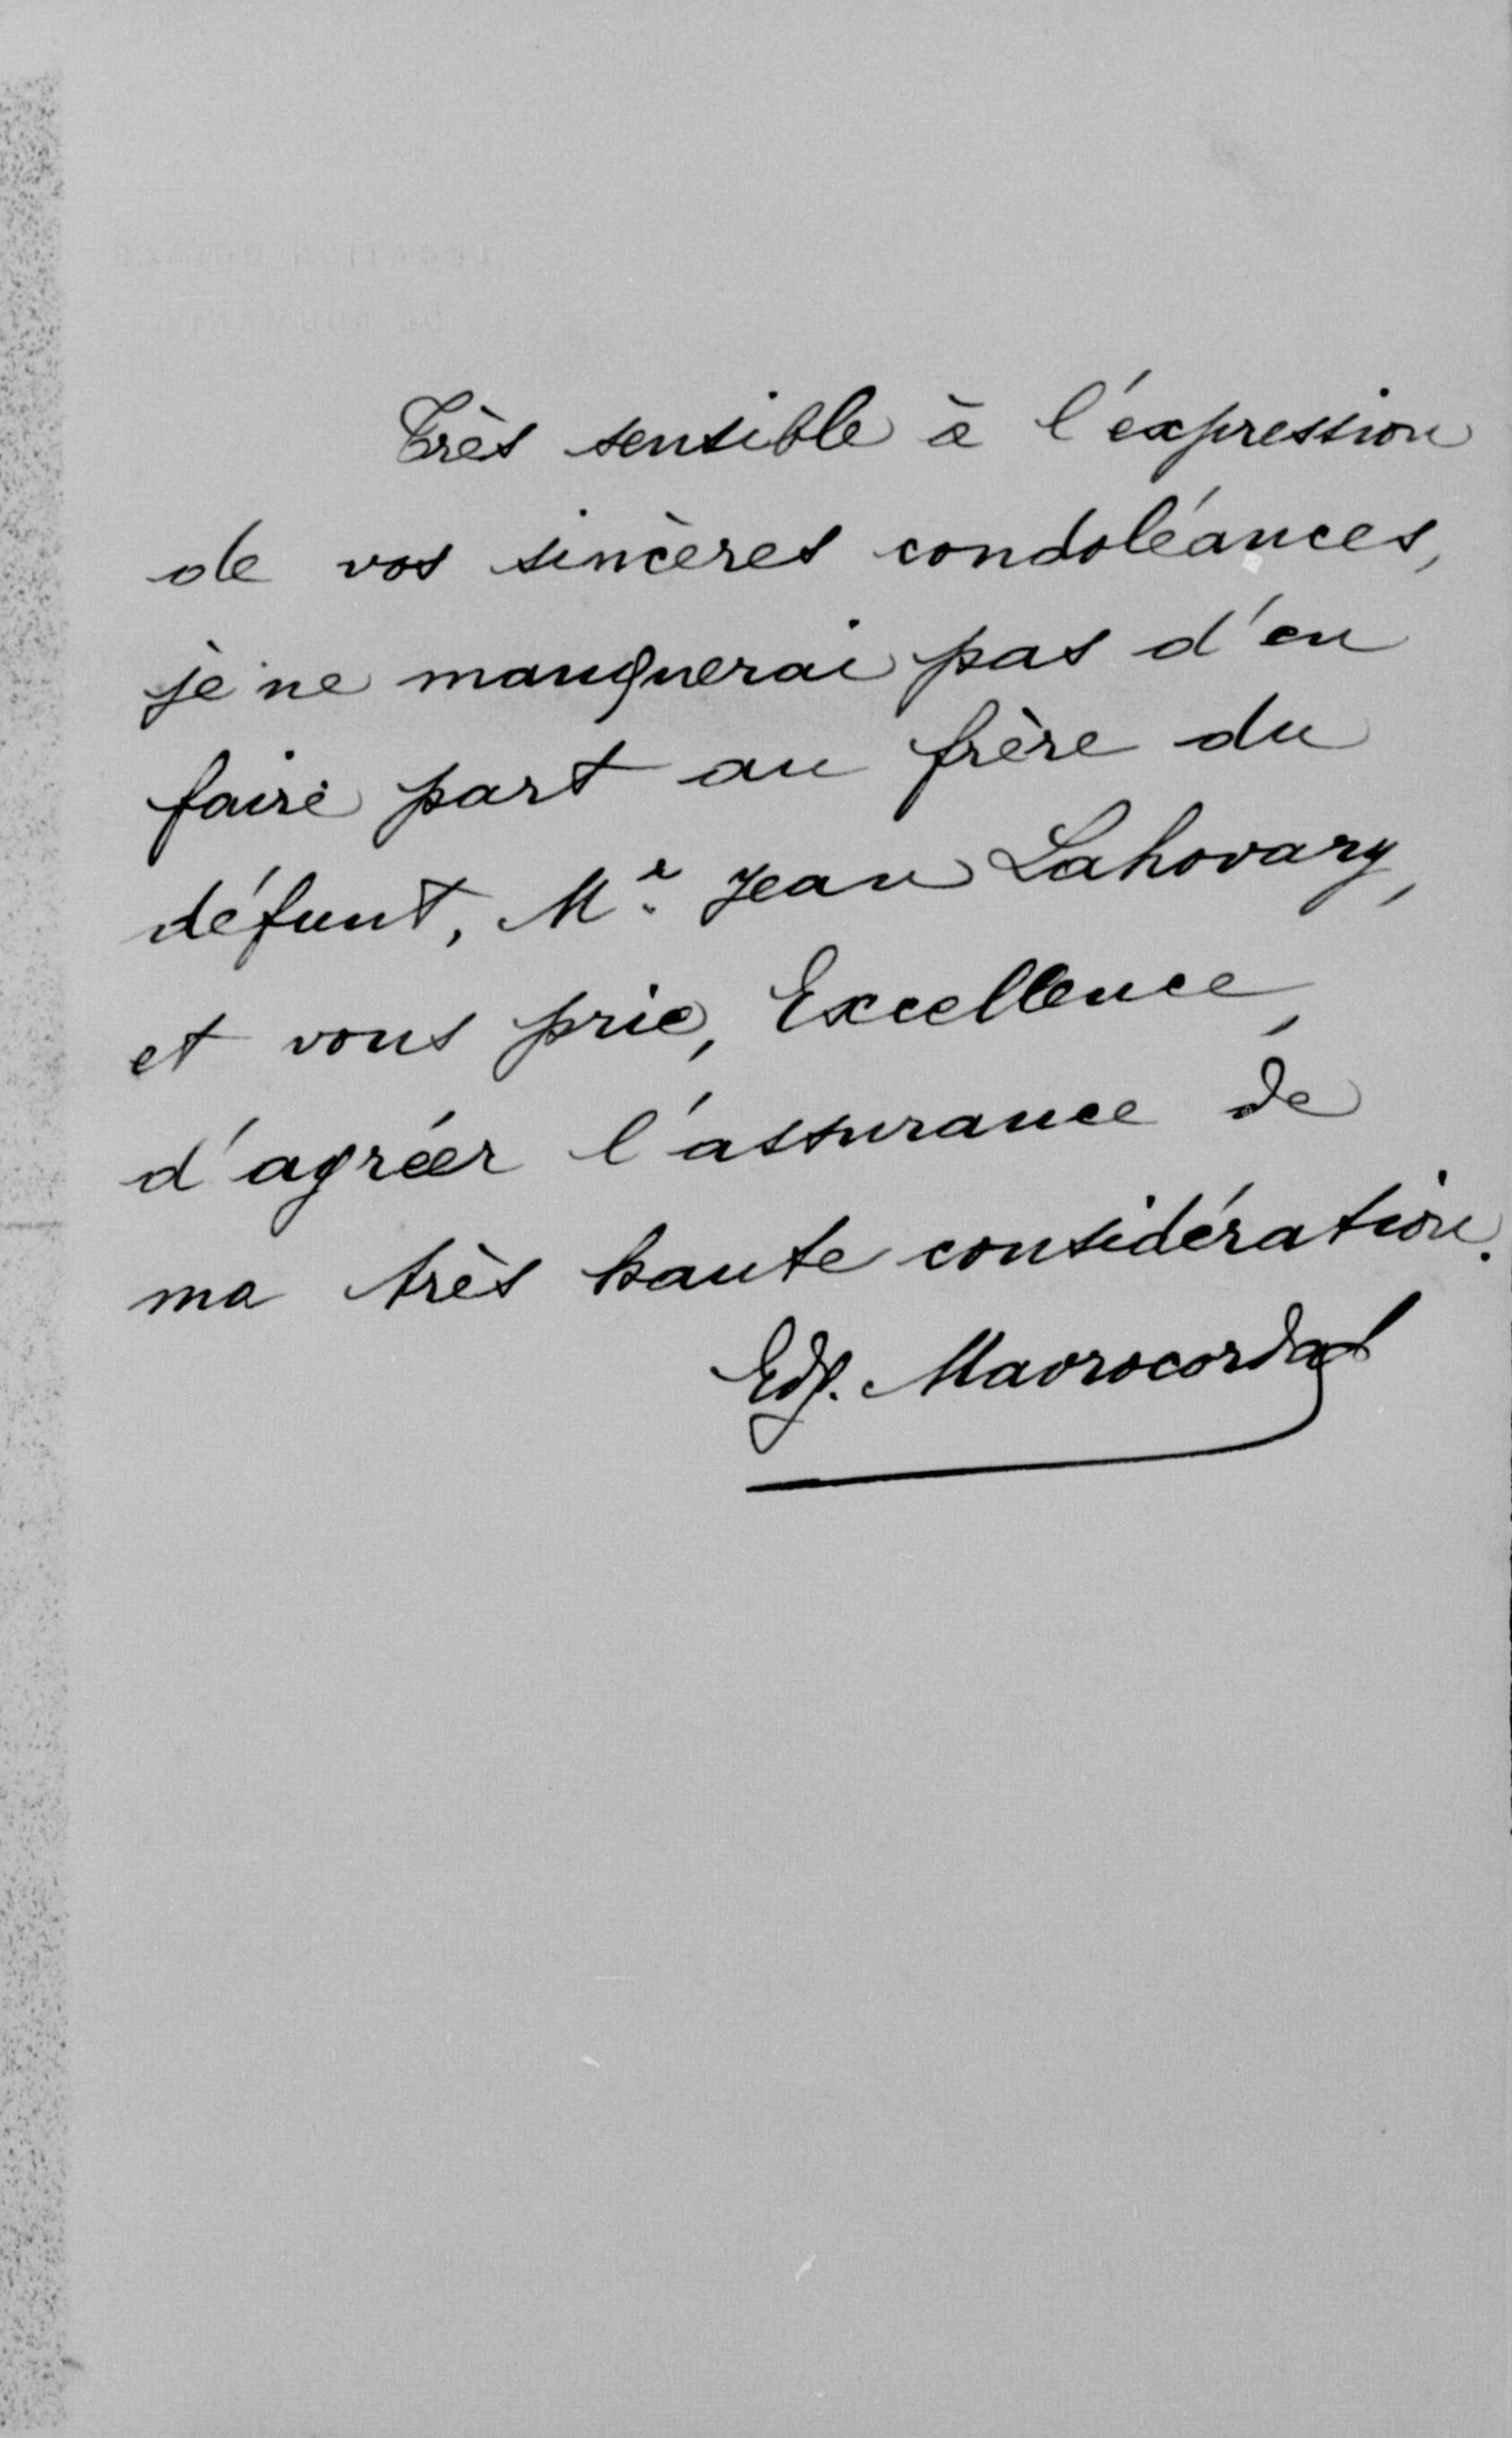 Très sensible à l'expression
de vos sincères condoléances,
je ne manquerai pas d'en
faire part au frère du
défunt, Mr. Jean Lahovary,
et vous prie, Excellence,
d'agréer l'assurance de
ma très haute considération.
Edg. Mavrocordat